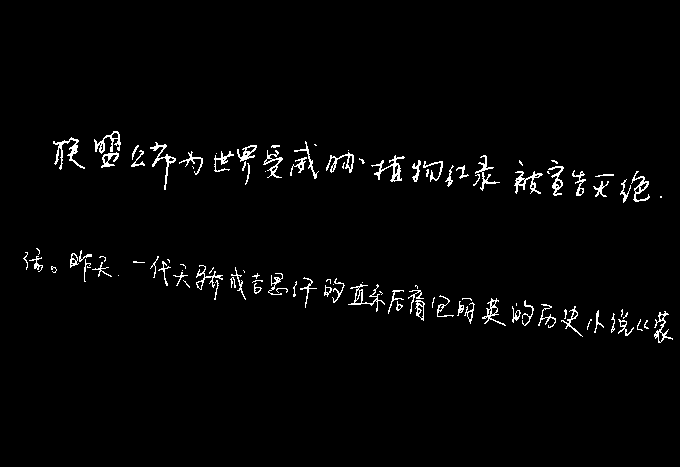 联盟公布为世界受威胁植物红录被宣告灭绝.
活。昨天.一代天骄成吉思汗的直系后裔包丽英的历史小说《蒙